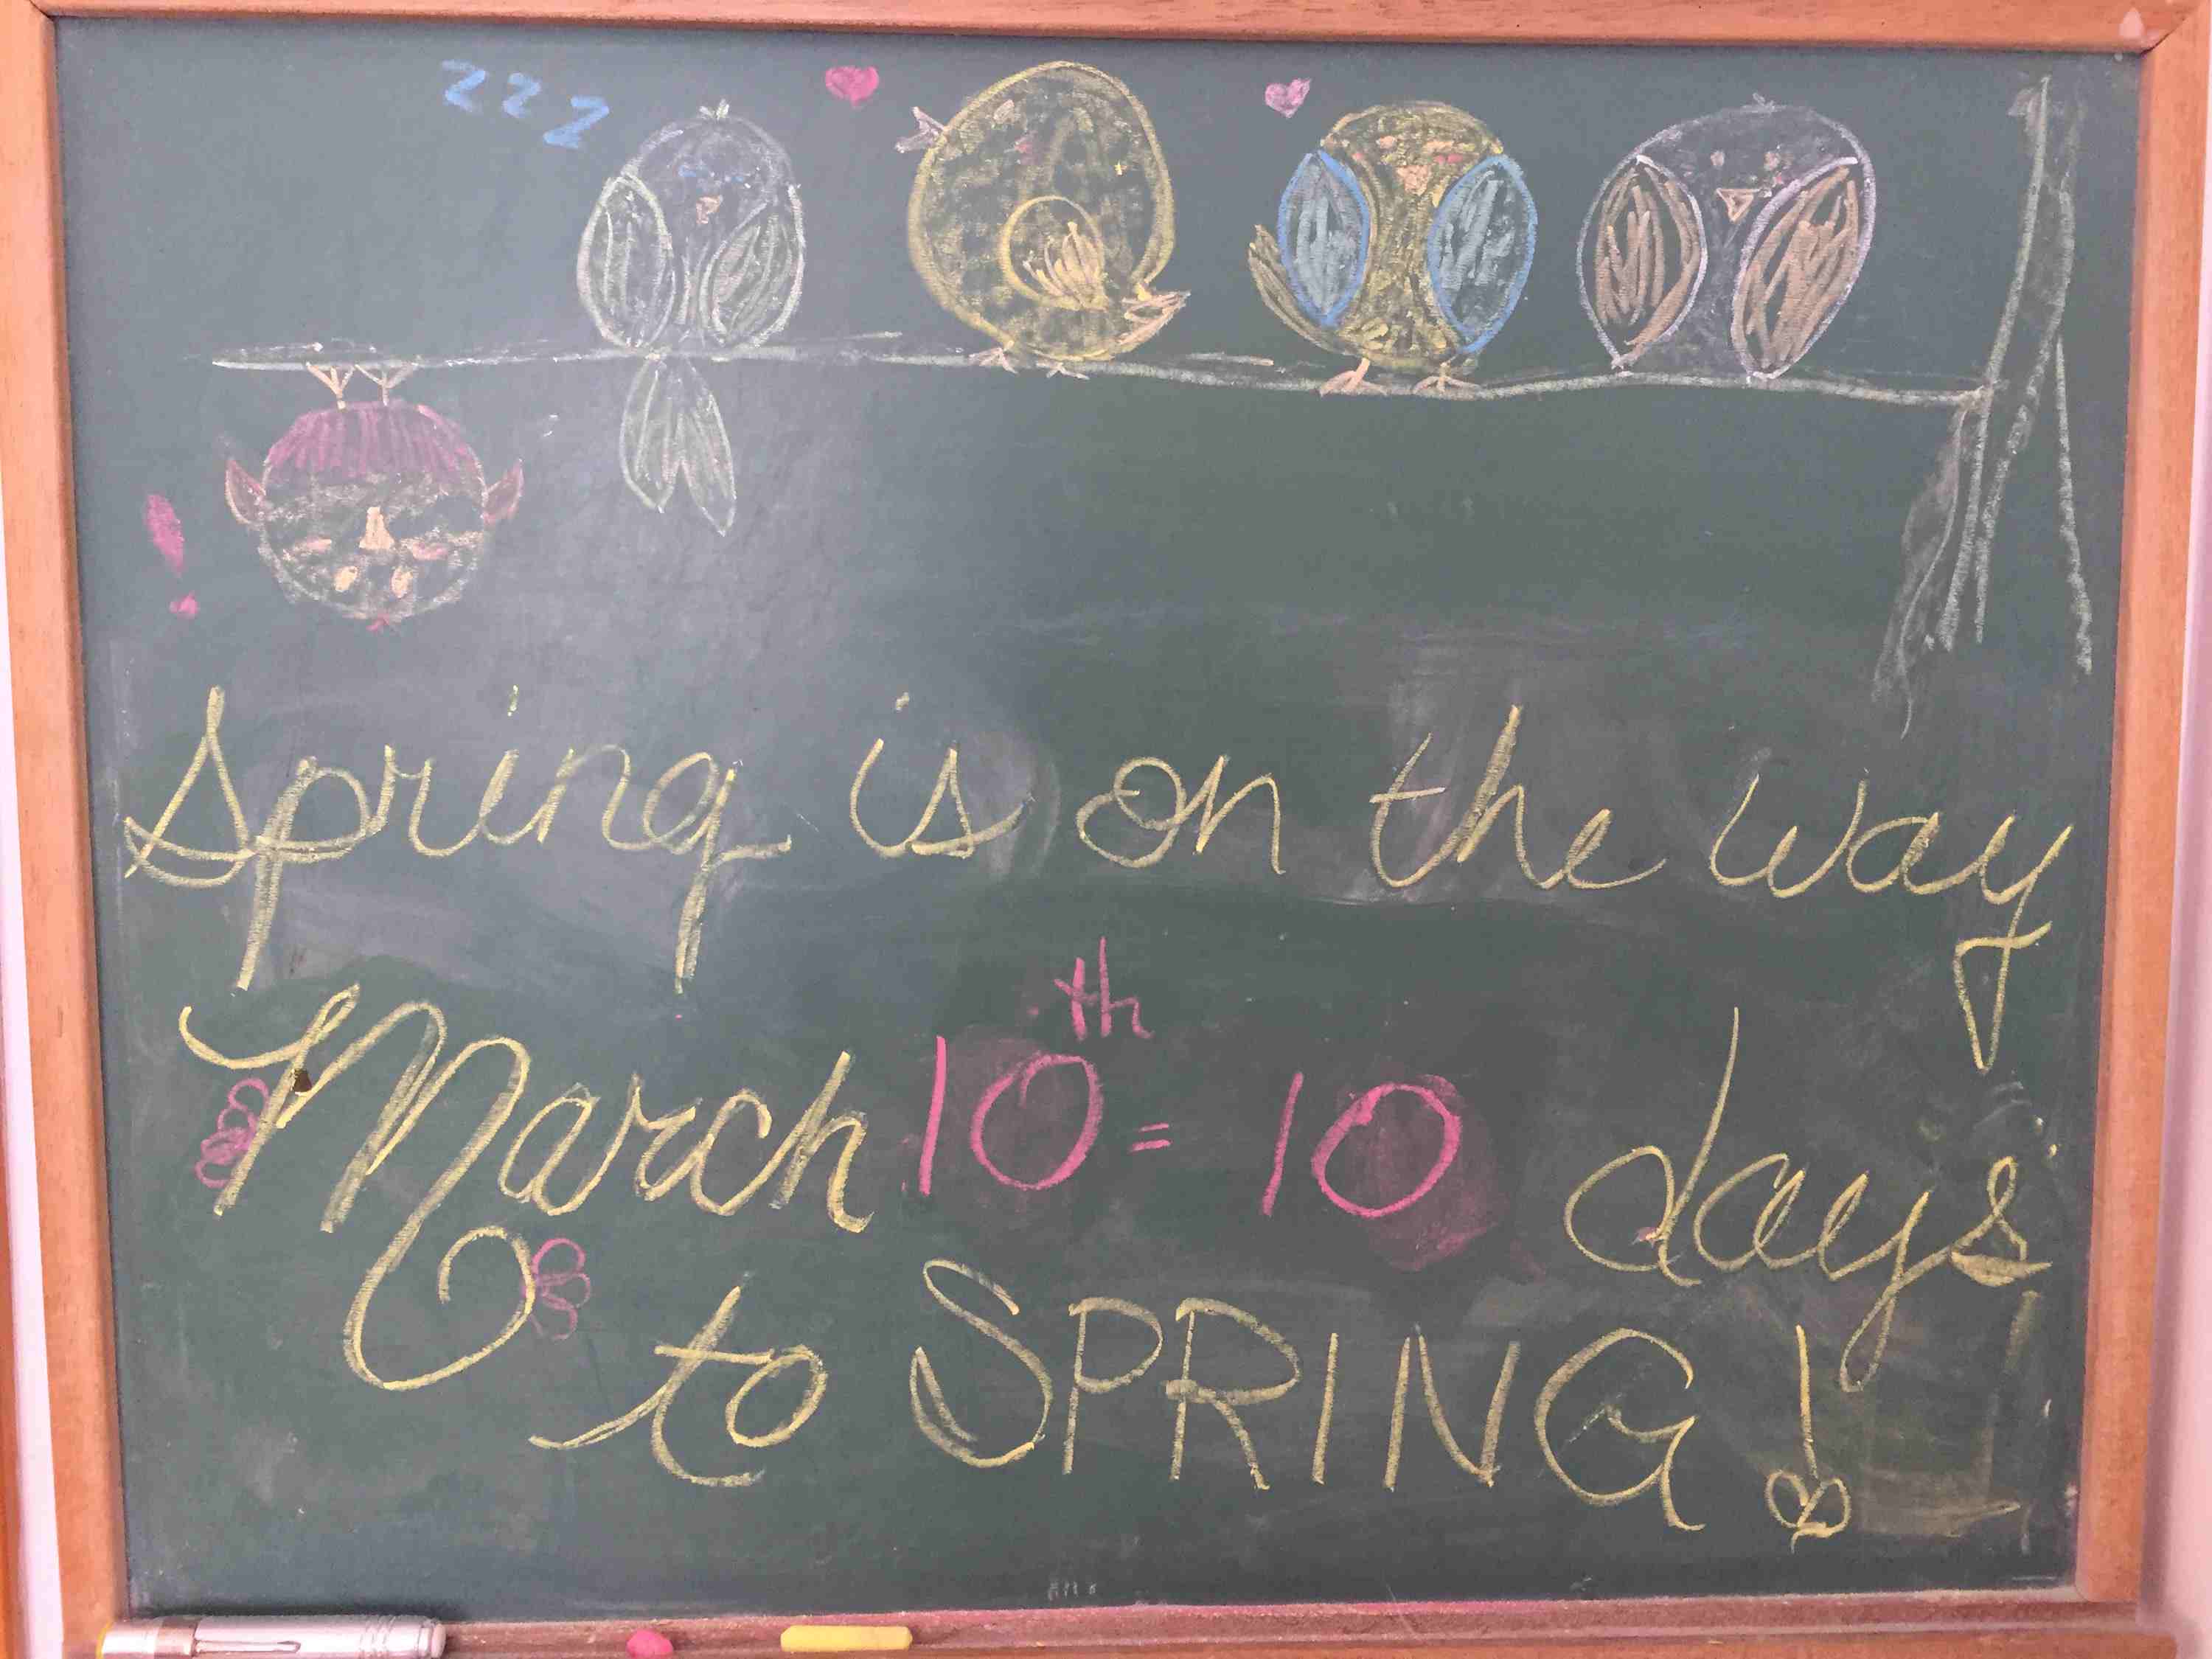 zzz
Spring is on the way
March 10th = 10 days
to SPRING!